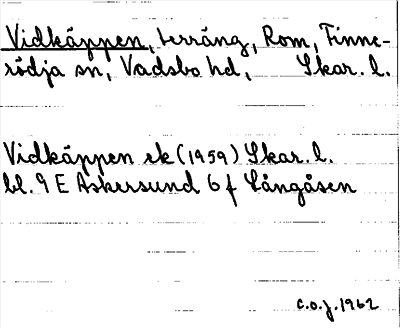 Vidkäppen, terräng, Rom, Finne-
rödja sn, Vadsbo hd, Skar. l.
Vidkäppen ek (1959) Skar. l.
bl. 9 E Askersund 6 f Långåsen
C.O.J. 1962